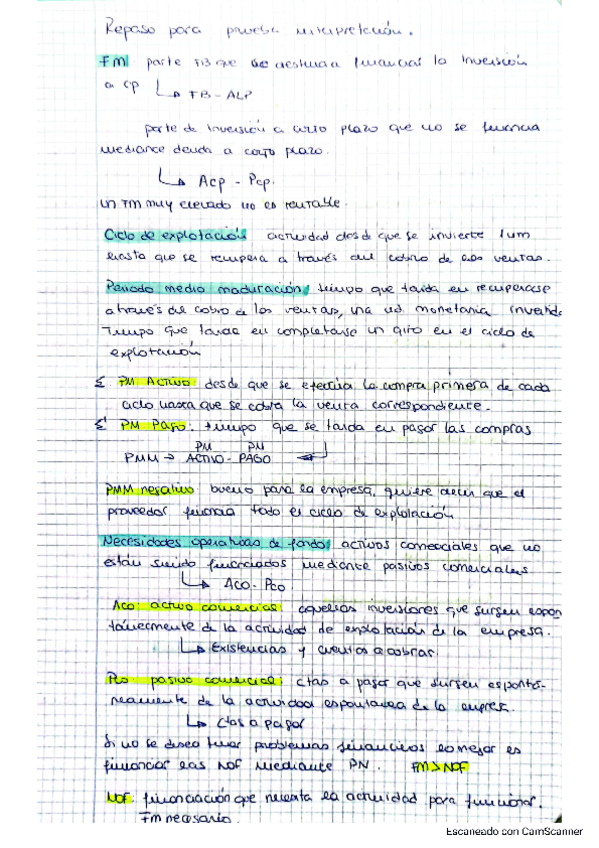 Repaso para prueba interpretación.
FM parte FB que se destina a financiar la inversión
a CP ↳ FB - ALP
parte de inversión a corto plazo que no se financia
mediante deuda a corto plazo.
↳ Acp - Pcp.
un FM muy elevado no es rentable.
Ciclo de explotación actividad desde que se invierte 1um
hasta que se recupera a través del cobro de las ventas.
Periodo medio maduración, tiempo que tarda en recuperarse
a través del cobro de las ventas, una ud. monetaria invertida
Tiempo que tarda en completarse un giro en el ciclo de
explotación
PM Activo desde que se efectúa la compra primera de cada
ciclo hasta que se cobra la venta correspondiente.
PM Pago: tiempo que se tarda en pagar las compras
PM PM
PMM → ACTIVO - PAGO
PMM negativo bueno para la empresa, quiere decir que el
proveedor financia todo el ciclo de explotación
Necesidades operativas de fondo: activos comerciales que no
están siendo financiados mediante pasivos comerciales
↳ Aco - Pco.
Aco: activo comercial: aquellas inversiones que surgen espon
táneamente de la actividad de explotación de la empresa.
↳ Existencias y cuentas a cobrar.
Pco pasivo comercial: ctas a pagar que surgen espontá-
neamente de la actividad espontanea de la empres.
↳ Ctas a pagar
Si no se desea tener problemas financieros lo mejor es
financiar las NOF mediante PN. FM > NOF
NOF: financiación que necesita la actividad para funcionar.
FM necesario.
Escaneado con CamScanner